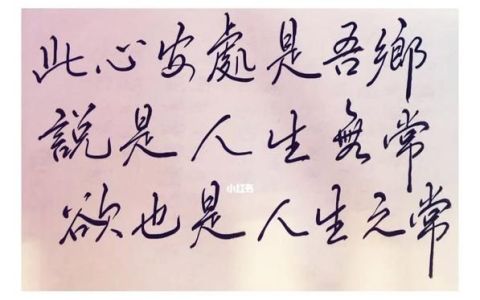 此心安處是吾鄉
說是人生無常
小红书
欲也是人生之常